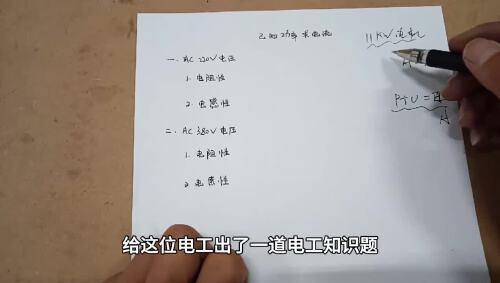 已知功率求电流
11KW电机
A
一、AC 220V电压
1. 电阻性
P÷U=电
A
2. 电感性
二、AC 380V电压
1. 电阻性
2. 电感性
给这位电工出了一道电工知识题